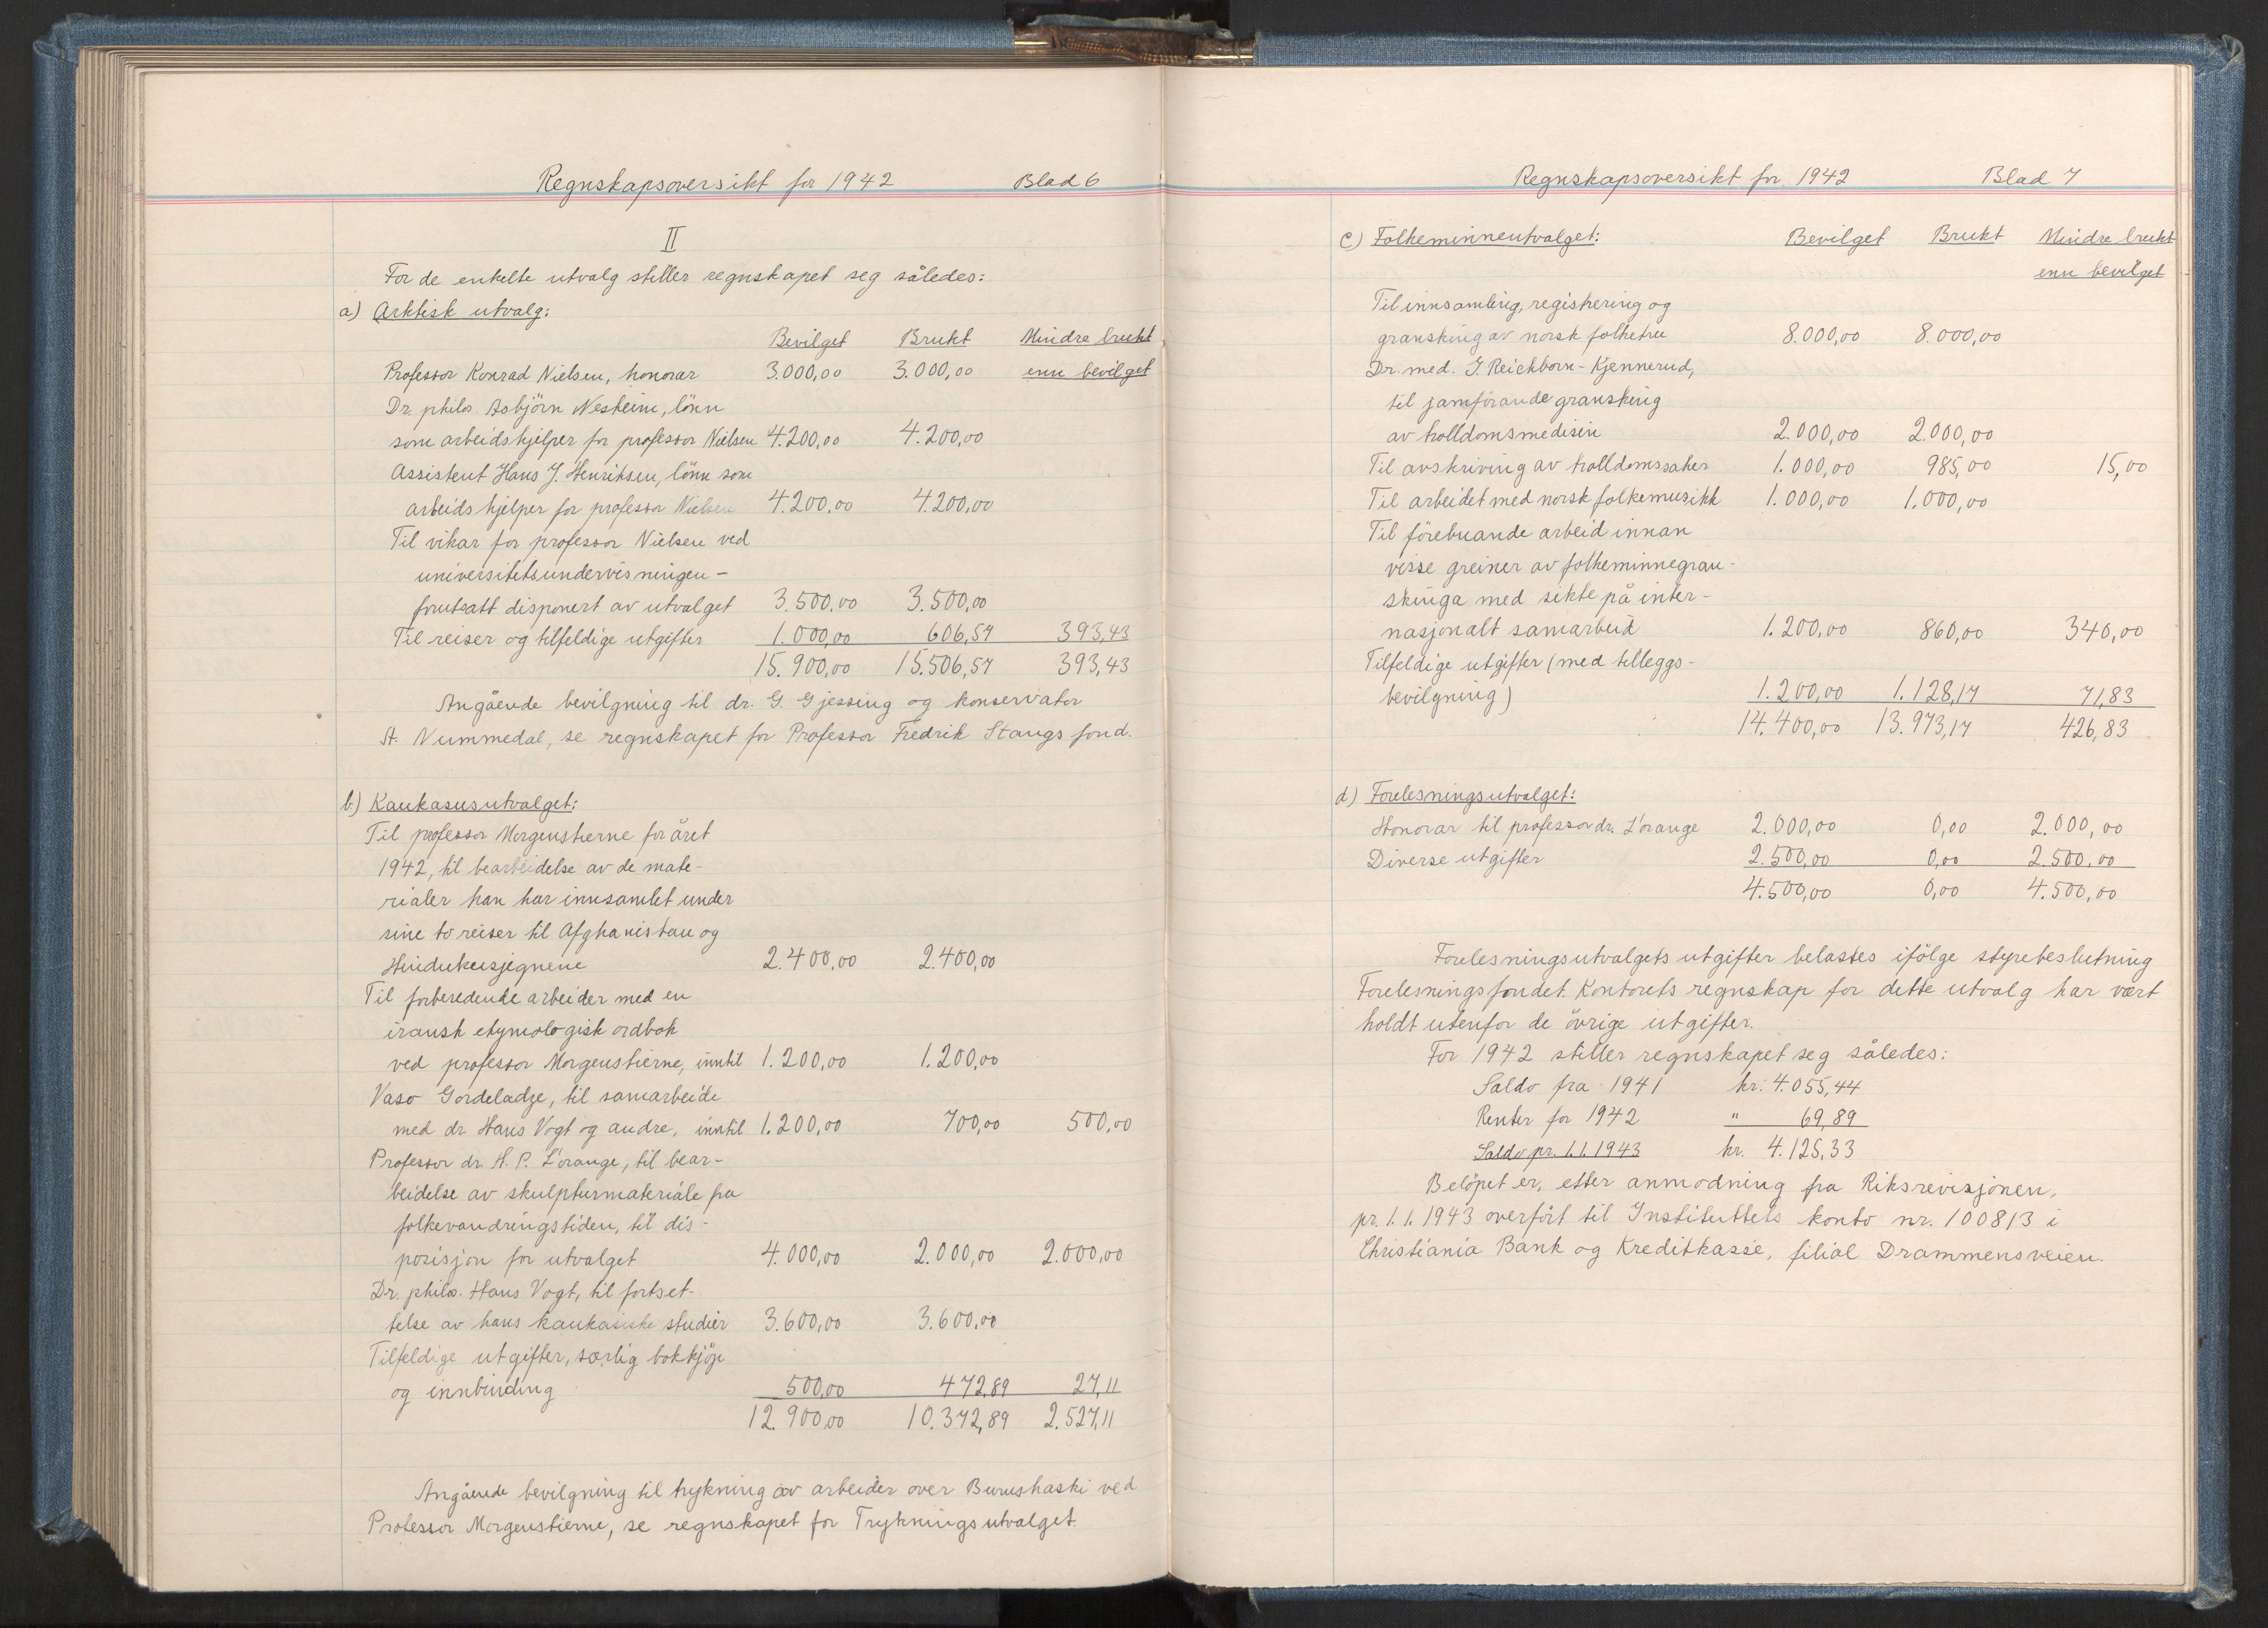 Regnskapsoversikt for 1942 Blad 6
II
For de enkelte utvalg stiller regnskapet seg således:
a) Arktisk utvalg:
Bevilget Brukt Mindre brukt
Professor Konrad Nielsen, honorar 3.000,00 3.000,00 enn bevilget
Dr. philos Asbjörn Nesheim, lönn
som arbeidshjelper for professor Nielsen 4.200,00 4.200,00
Assistent Hans J. Henriksen, lönn som
arbeidshjelper for professor Nielsen 4.200,00 4.200,00
Til vikar for professor Nielsen ved
universitetsundervisningen -
forutsatt disponert av utvalget 3.500,00 3.500,00
Til reiser og tilfeldige utgifter 1.000,00 606,57 393,43
15.900,00 15.506,57 393,43
Angående bevilgning til dr. G. Gjessing og konservator
A. Nummedal, se regnskapet for Professor Fredrik Stangs fond.
b.) Kaukasusutvalget:
Til professor Morgenstierne for året
1942, til bearbeidelse av de mate-
rialer han har innsamlet under
sine to reiser til Afghanistan og
Hindukusjegnene 2.400,00 2.400,00
Til forberedende arbeider med en
iransk etymologisk ordbok
ved professor Morgenstierne, inntil 1.200,00 1.200,00
Vaso Gordeladze, til samarbeide
med dr. Hans Vogt og andre, inntil 1.200,00 700,00 500,00
Professor dr. H. P. L'orange, til bear-
beidelse av skulpturmateriale fra
folkevandringstiden, til dis-
posisjon for utvalget 4.000,00 2.000,00 2.000,00
Dr. philos. Hans Vogt, til fortset-
telse av hans kaukasiske studier 3.600,00 3.600,00
Tilfeldige utgifter, særlig bokkjöp
og innbinding 500,00 472,89 27,11
12.900,00 10.372,89 2.527,11
Angående bevilgning til trykning av arbeider over Burushaski ved
Professor Morgenstierne, se regnskapet for Trykningsutvalget.
Regnskapsoversikt for 1942 Blad 7
c) Folkeminneutvalget: Bevilget Brukt Mindre brukt
enn bevilget
Til innsamling, registrering og
gransking av norsk folketru 8.000,00 8.000,00
Dr. med. I. Reichborn-Kjennerud,
til jamförande gransking
av trolldomsmedisin 2.000,00 2.000,00
Til avskriving av trolldomssaker 1.000,00 985,00 15,00
Til arbeidet med norsk folkemusikk 1.000,00 1.000,00
Til förebuande arbeid innan
visse greiner av folkeminnegran-
skinga med sikte på inter-
nasjonalt samarbeid 1.200,00 860,00 340,00
Tilfeldige utgifter (med tilleggs-
bevilgning) 1.200,00 1.128,17 71,83
14.400,00 13.973,17 426,83
d) Forelesningsutvalget:
Honorar til professor dr. L'orange 2.000,00 0,00 2.000,00
Diverse utgifter 2.500,00 0,00 2.500,00
4.500,00 0,00 4.500,00
Forelesningsutvalgets utgifter belastes ifölge styrebeslutning
Forelesningsfondet. Kontorets regnskap for dette utvalg har vært
holdt utenfor de övrige utgifter.
For 1942 stiller regnskapet seg således:
Saldo fra 1941 kr. 4.055,44
Renter for 1942 " 69,89
Saldo pr. 1.1.1943 kr. 4.125,33
Belöpet er, etter anmodning fra Riksrevisjonen,
pr. 1.1.1943 overfört til Instituttets konto nr. 100813 i
Christiania Bank og Kreditkasse, filial Drammensveien.